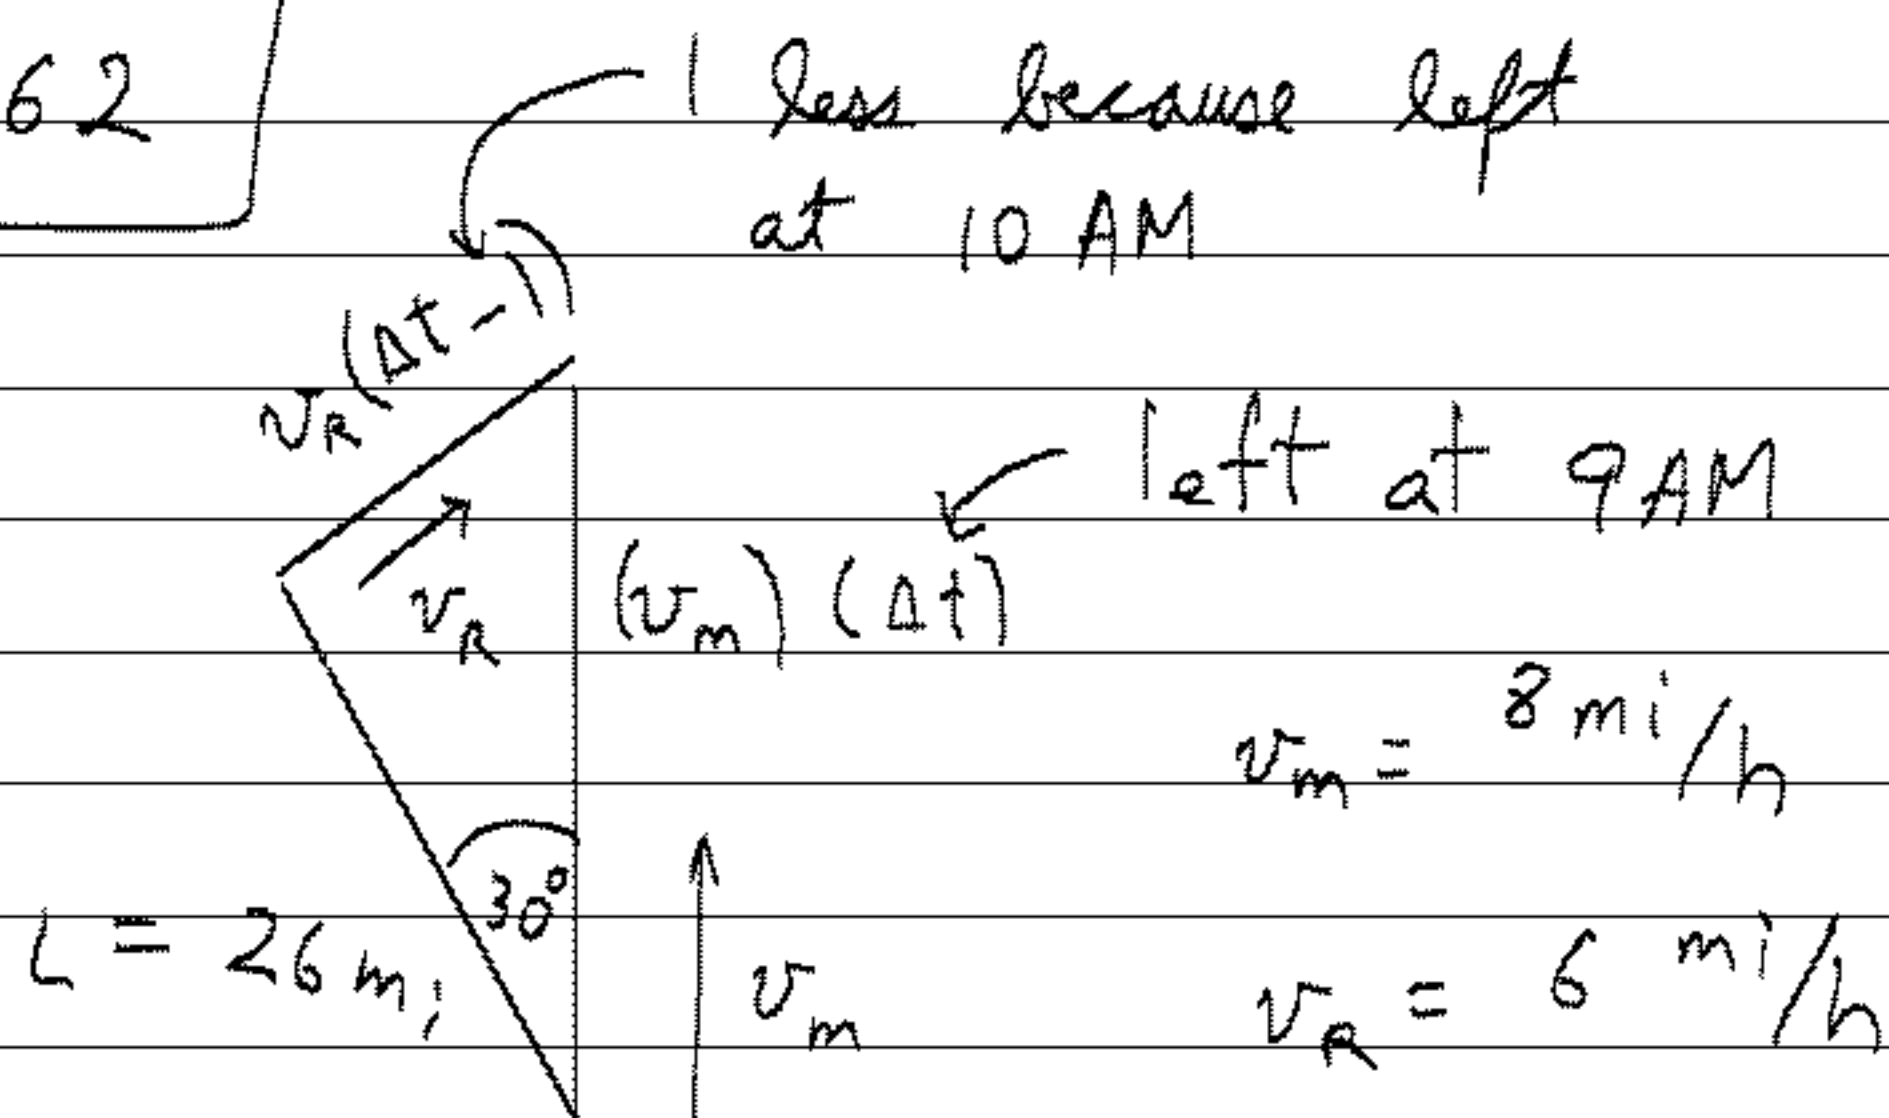 62
1 less because left
at 10 AM
v_R(Δt-1)
left at 9AM
v_R
(v_m)(Δt)
v_m = 8 mi/h
30°
L = 26 mi
v_m
v_R = 6 mi/h